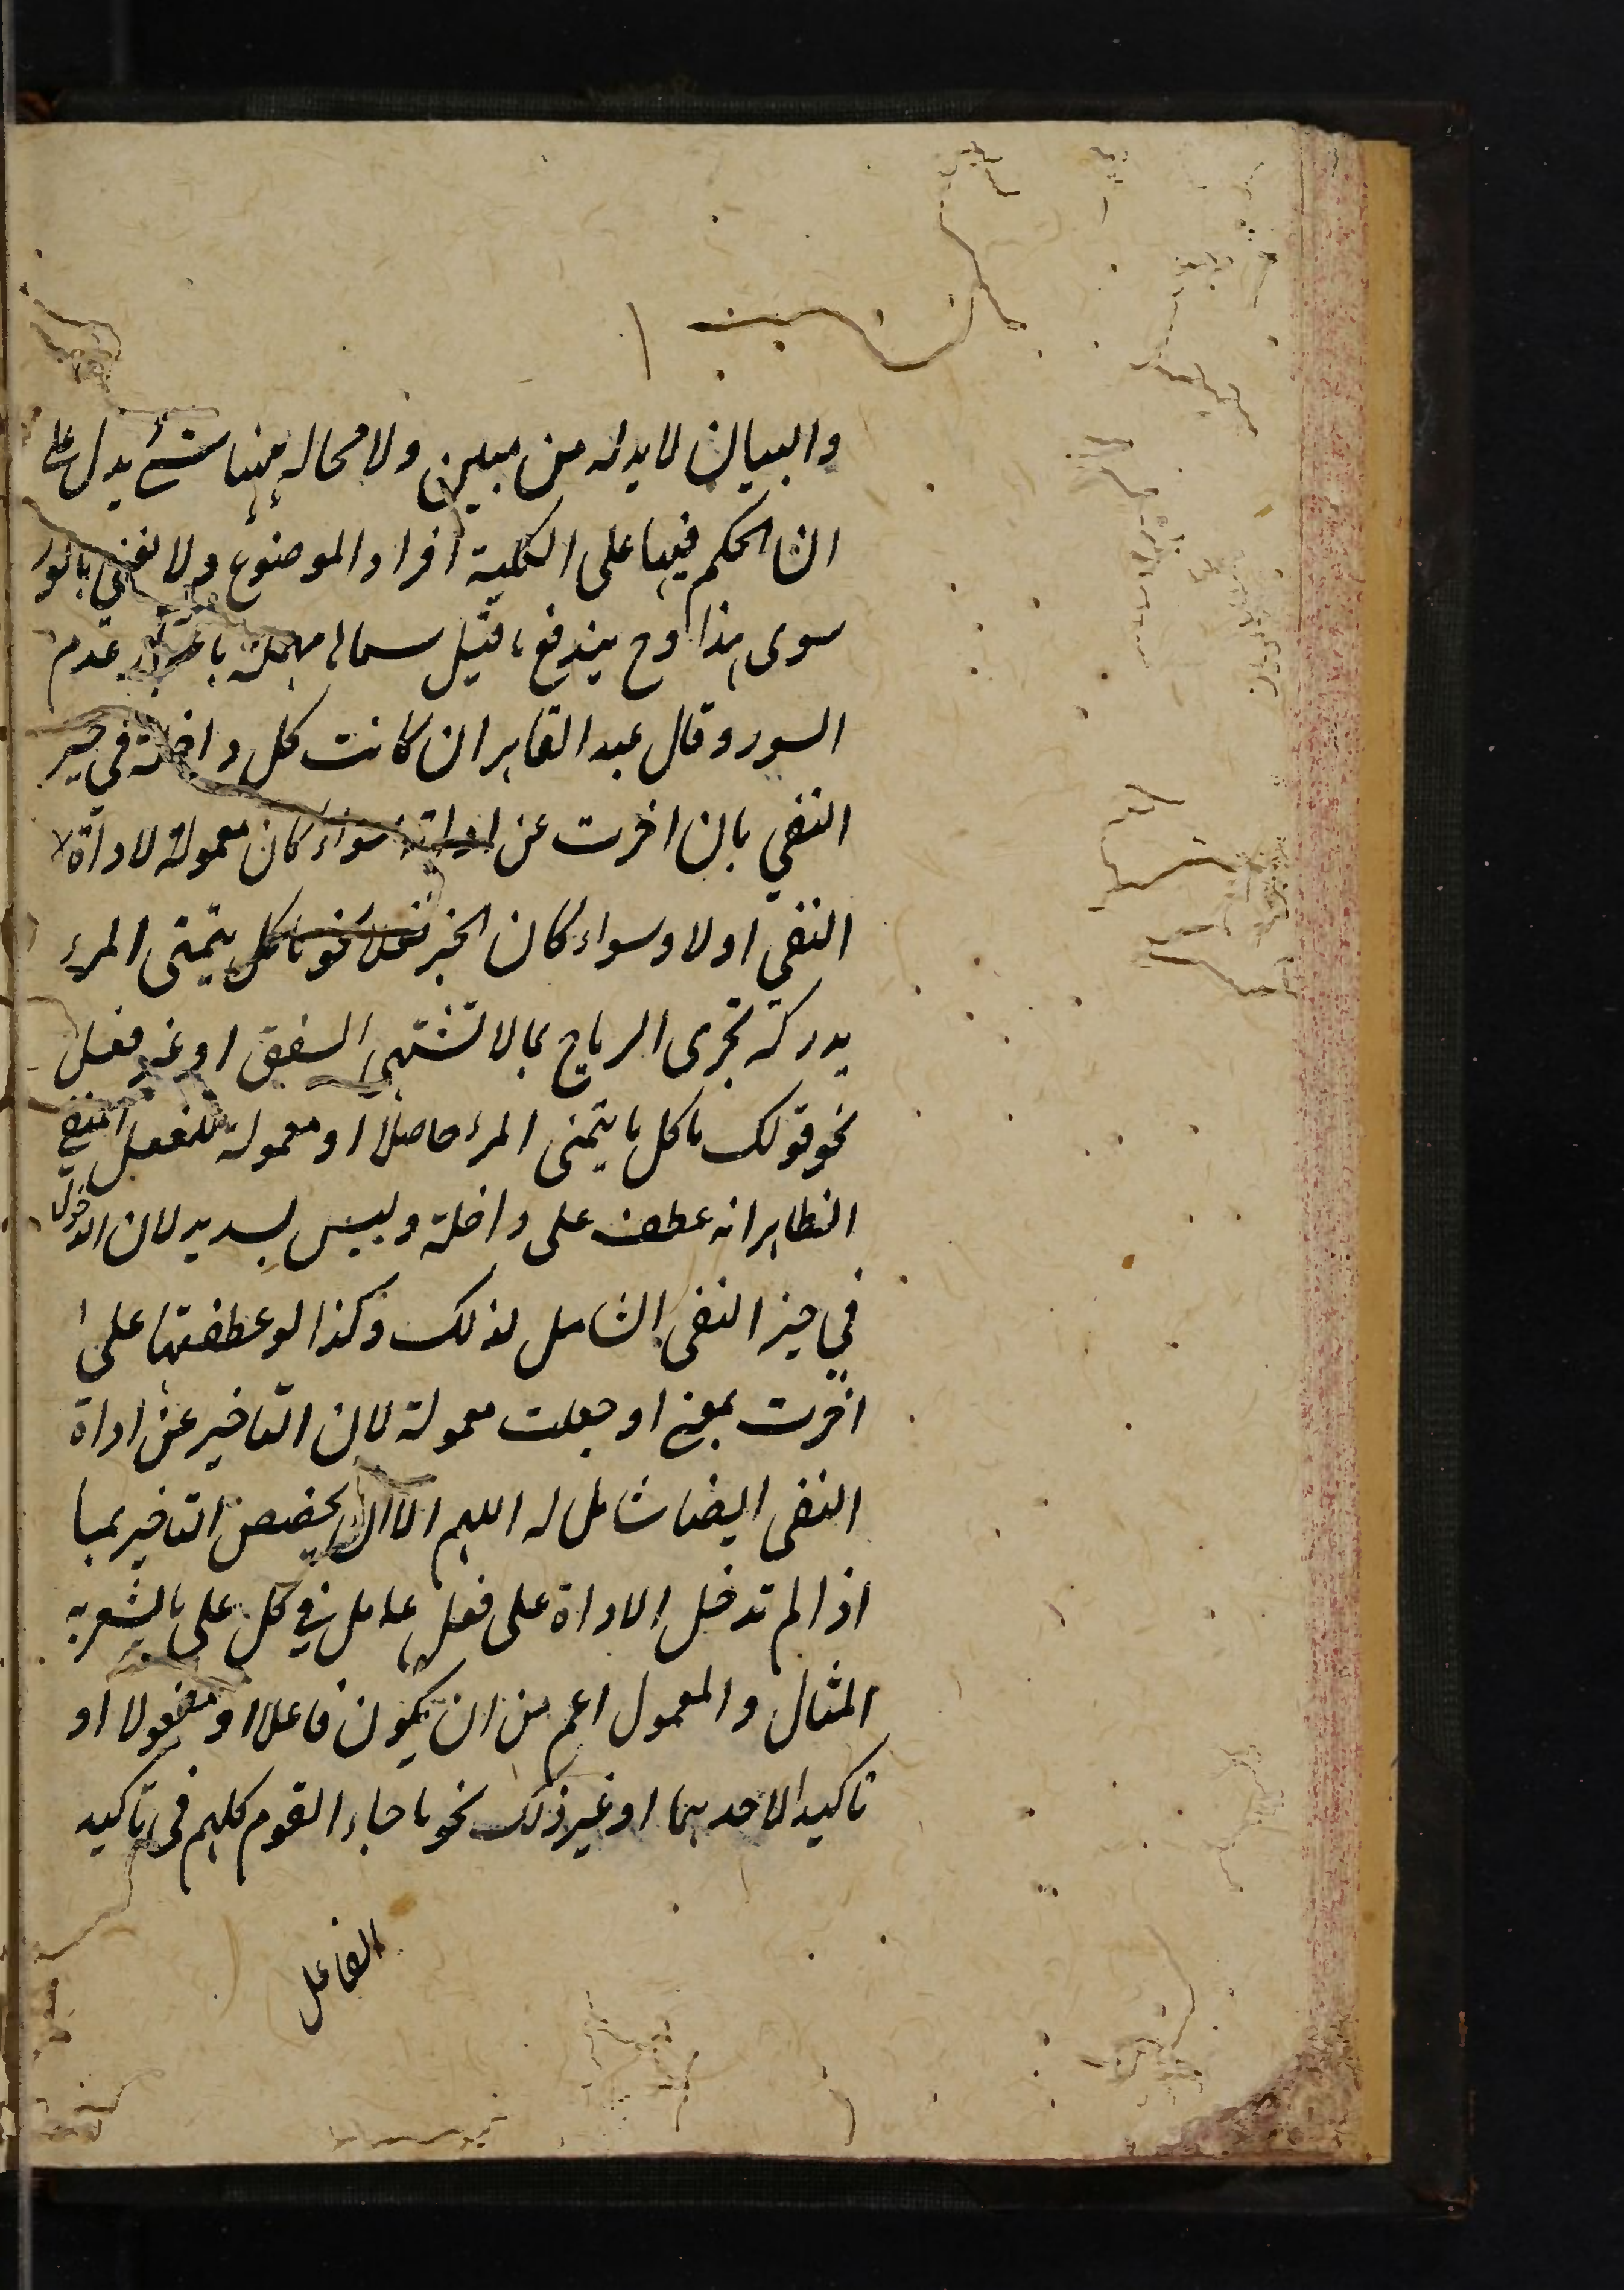 والبيان لابد له من مبين ولا محالة ههنا شئ يدل على
ان الحكم فيها على الكلية افراد الموضوع ولا نعنى بالسور
سوى هذا وح يندفع ما قيل سماها مهملة باعتبار عدم
السور وقال عبد القاهر ان كانت كل داخلة في حيز
النفي بان اخرت عن اداته سواء كان معمولة لاداة
النفي اولا وسواء كان الخبر فعلا نحو ما كل يتمنى المرء
يدركه تجرى الرياح بما لا تشتهي السفن او غير فعل
نحو قولك ما كل ما يتمنى المرء حاصلا او معمولة للفعل المنفي
الظاهر انه عطف على داخلة وليس بسديد لان الدخول
في حيز النفي الشامل لذلك وكذا لو عطفتها على
اخرت بمعنى او جعلت معمولة لان التاخير عن اداة
النفي ايضا شامل له اللهم الا ان يخصص التاخير بما
اذا لم تدخل الاداة على فعل عامل في كل على ما يشعر به
المثال والمعمول اعم من ان يكون فاعلا او مفعولا او
تاكيدا لاحدهما او غير ذلك نحو ما جاء القوم كلهم في تاكيد
الفاعل